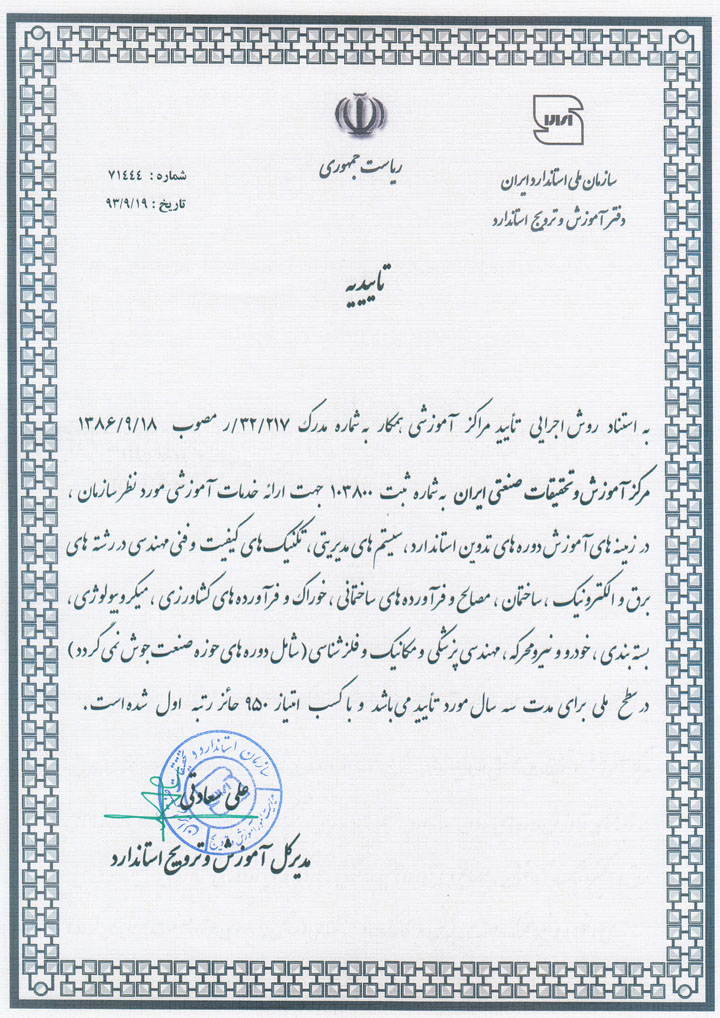 ریاست جمهوری
سازمان ملی استاندارد ایران
دفتر آموزش و ترویج استاندارد
شماره : ۷۱۴۴۴
تاریخ : ۹۳/۹/۱۹
تاییدیه
به استناد روش اجرایی تأیید مراکز آموزشی همکار به شماره مدرک ۳۲/۲۱۷/ر مصوب ۱۳۸۶/۹/۱۸
مرکز آموزش و تحقیقات صنعتی ایران به شماره ثبت ۱۰۳۸۰۰ جهت ارائه خدمات آموزشی مورد نظر سازمان ،
در زمینه های آموزش دوره های تدوین استاندارد ، سیستم های مدیریتی ، تکنیک های کیفیت و فنی مهندسی در رشته های
برق و الکترونیک ، ساختمان ، مصالح و فرآورده های ساختمانی ، خوراک و فرآورده های کشاورزی ، میکروبیولوژی ،
بسته بندی ، خودرو و نیرو محرکه ، مهندسی پزشکی و مکانیک و فلزشناسی (شامل دوره های حوزه صنعت جوش نمی گردد)
در سطح ملی برای مدت سه سال مورد تأیید می باشد و با کسب امتیاز ۹۵۰ حائز رتبه اول شده است .
علی سعادتی
مدیرکل آموزش و ترویج استاندارد